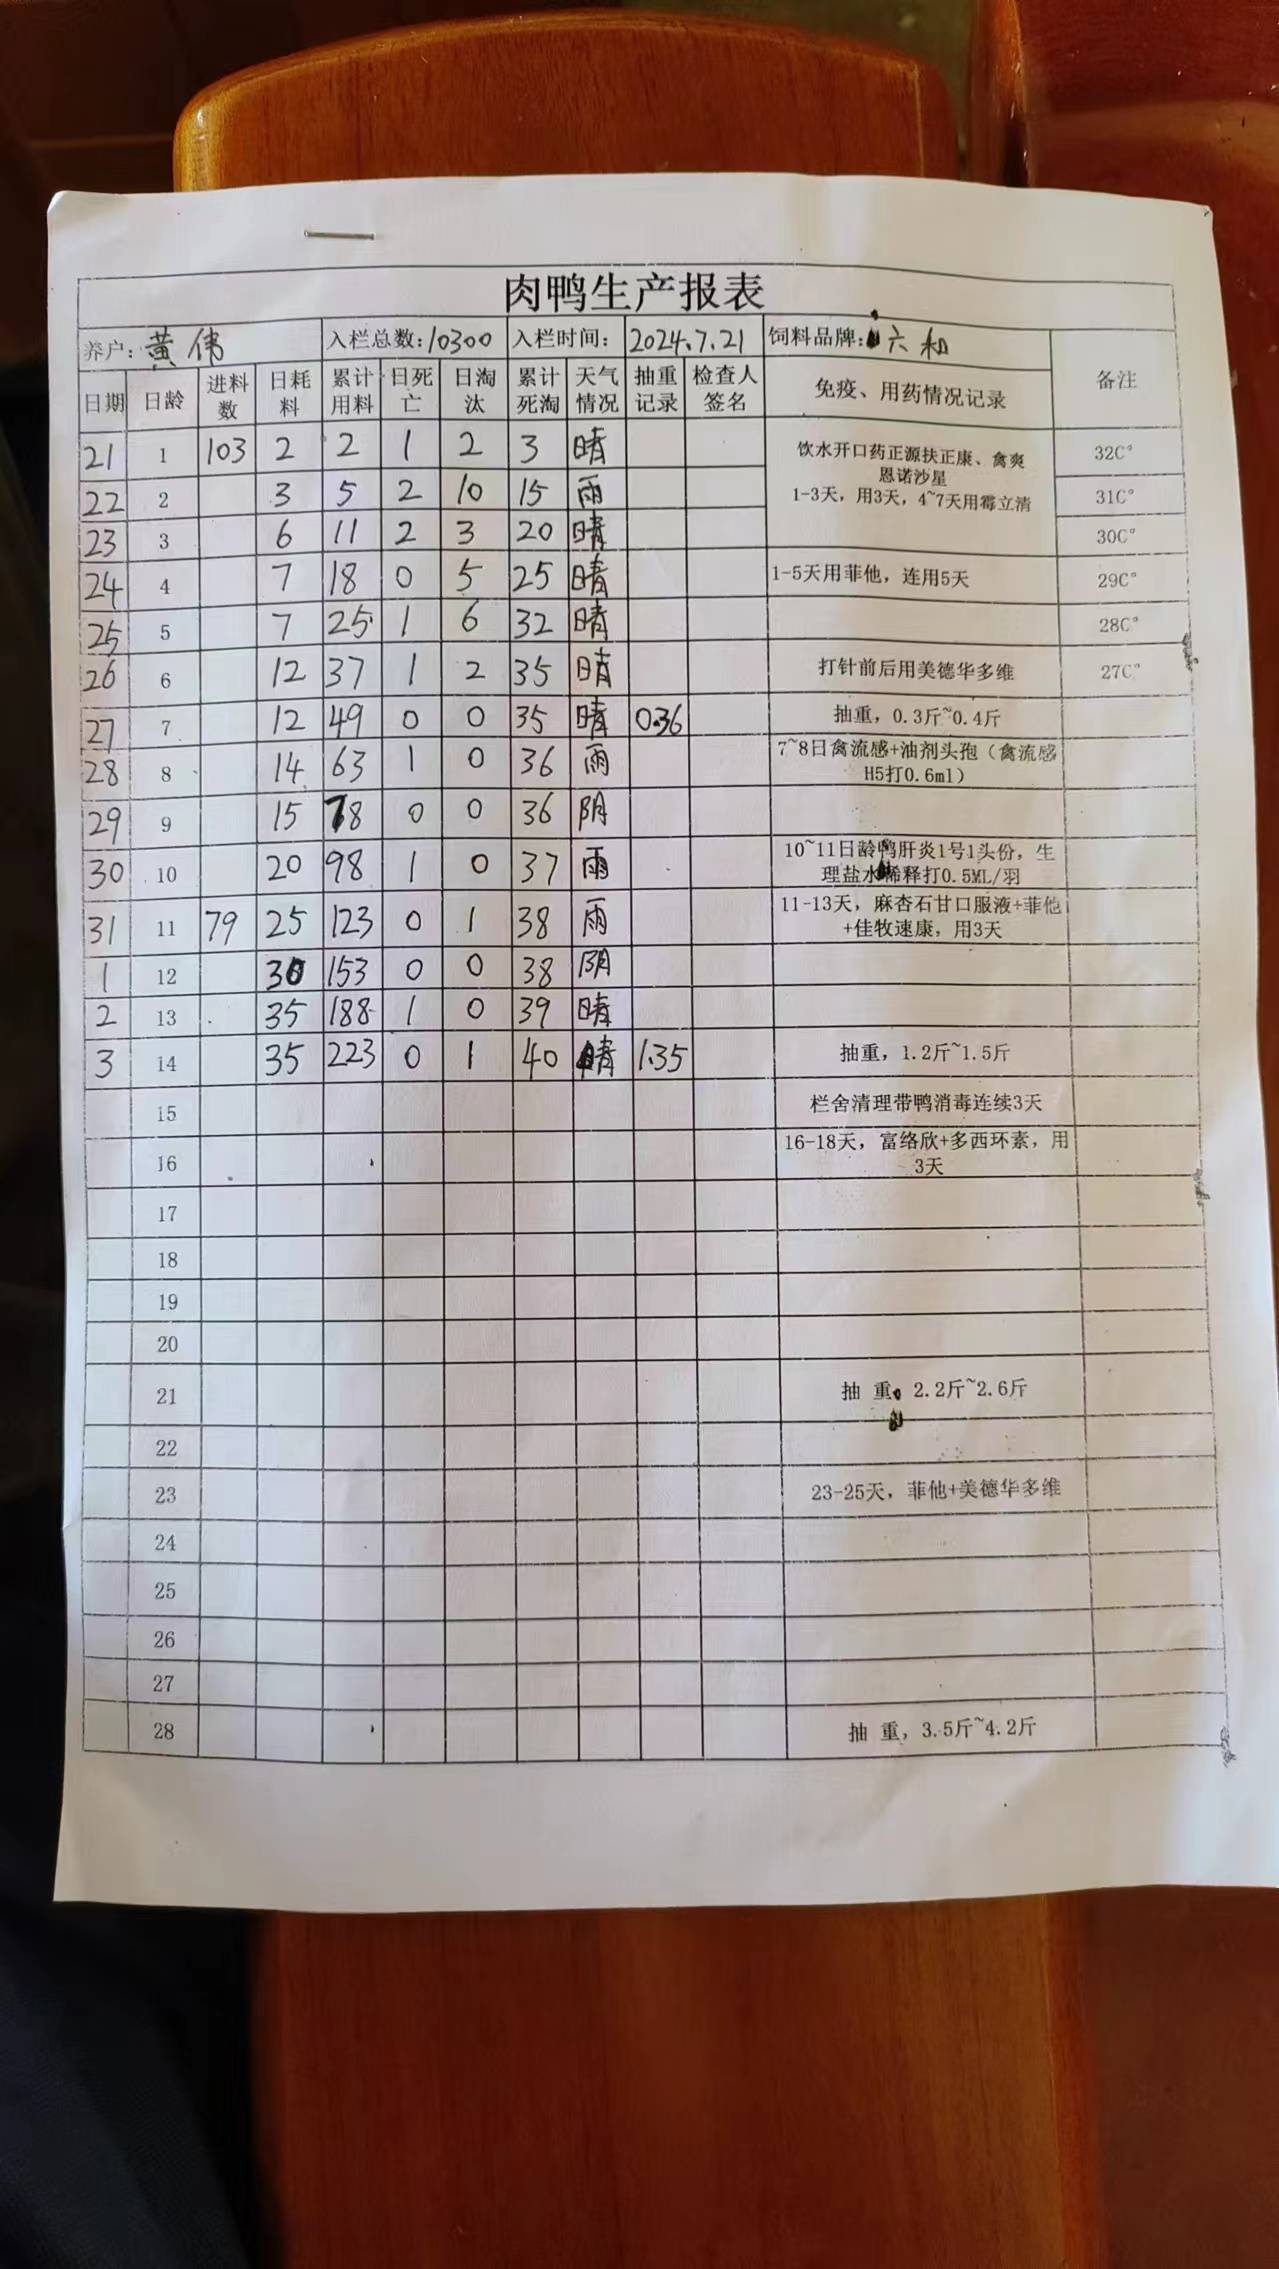 肉鸭生产报表
养户: 黄伟 入栏总数: 10300 入栏时间: 2024.7.21 饲料品牌: 六和
日期 日龄 进料数 日耗料 累计用料 日死亡 日淘汰 累计死淘 天气情况 抽重记录 检查人签名 免疫、用药情况记录 备注
21 1 103 2 2 1 2 3 晴 饮水开口药正源扶正康、禽爽 32C°
恩诺沙星
22 2 3 5 2 10 15 雨 1-3天，用3天，4~7天用霉立清 31C°
23 3 6 11 2 3 20 晴 30C°
24 4 7 18 0 5 25 晴 1-5天用菲他，连用5天 29C°
25 5 7 25 1 6 32 晴 28C°
26 6 12 37 1 2 35 晴 打针前后用美德华多维 27C°
27 7 12 49 0 0 35 晴 0.36 抽重，0.3斤~0.4斤
28 8 14 63 1 0 36 雨 7~8日禽流感+油剂头孢（禽流感
H5打0.6ml）
29 9 15 78 0 0 36 阴
30 10 20 98 1 0 37 雨 10~11日龄鸭肝炎1号1头份，生
理盐水稀释打0.5ML/羽
31 11 79 25 123 0 1 38 雨 11-13天，麻杏石甘口服液+菲他
+佳牧速康，用3天
1 12 30 153 0 0 38 阴
2 13 35 188 1 0 39 晴
3 14 35 223 0 1 40 晴 1.35 抽重，1.2斤~1.5斤
15 栏舍清理带鸭消毒连续3天
16 16-18天，富络欣+多西环素，用
3天
17
18
19
20
21 抽 重，2.2斤~2.6斤
22
23 23-25天，菲他+美德华多维
24
25
26
27
28 抽 重，3.5斤~4.2斤